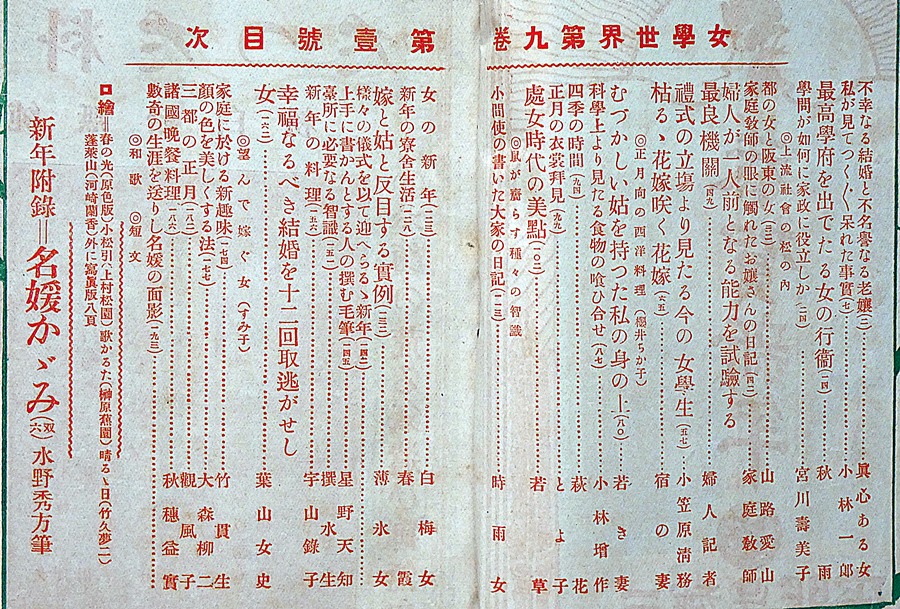 女學世界第九卷
第壹號目次
不幸なる結婚と不名譽なる老孃(二)眞心ある女
私が見てつく〲呆れた事實(七)小林一郎
◎上流社會の松の內
最高學府を出でたる女の行衞(一四)秋雨
學問が如何に家政に役立しか(二四)宮川壽美子
都の女と阪東の女(三三)山路愛山
家庭敎師の眼に觸れたお孃さんの日記(四二)家庭敎師
婦人が一人前となる能力を試驗する
最良機關(四九)婦人記者
禮式の立塲より見たる今の女學生(五七)小笠原淸務
枯るゝ花嫁咲く花嫁(六五)宿の妻
◎正月向の西洋料理(櫻井ちか子)
むづかしい姑を持つた私の身の上(八〇)若き妻
科學上より見たる食物の喰ひ合せ(八七)小林增作
四季の時間(九四)萩花
正月の衣裳拜見(九九)とよ子
處女時代の美點(一〇二)若草
◎風が齎らす種々の智識
小間使の書いた大家の日記(一一三)時雨女
女の新年(一二三)白梅女
新年の寮舍生活(一二八)春霞
嫁と姑と反目する實例(一三三)薄氷女
樣々の儀式を以て迎へらるゝ新年(一四二)
上手に書かんとする人の撰む毛筆(一四五)星野天知
臺所に必要なる智識(一五二)撰水生
新年の料理(一五六)宇山錄子
幸福なるべき結婚を十二回取逃がせし
女(一六二)葉山女史
◎望んで嫁ぐ女(すみ子)
家庭に於ける新趣味(一七四)竹貫生
顏の色を美しくする法(一七七)大森柳二
三都の正月(一八二)觀風子
諸國晚餐料理(一八六)秋穗益實
數奇の生涯を送りし名媛の面影(一九三)
◎和歌 ◎短文
口繪=春の光(原色版)小松引(上村松園)歌かるた(榊原蕉園)晴るゝ日(竹久夢二)
蓬萊山(河崎蘭香)外に寫眞版八頁
新年附錄=名媛かゞみ(双六)水野秀方筆